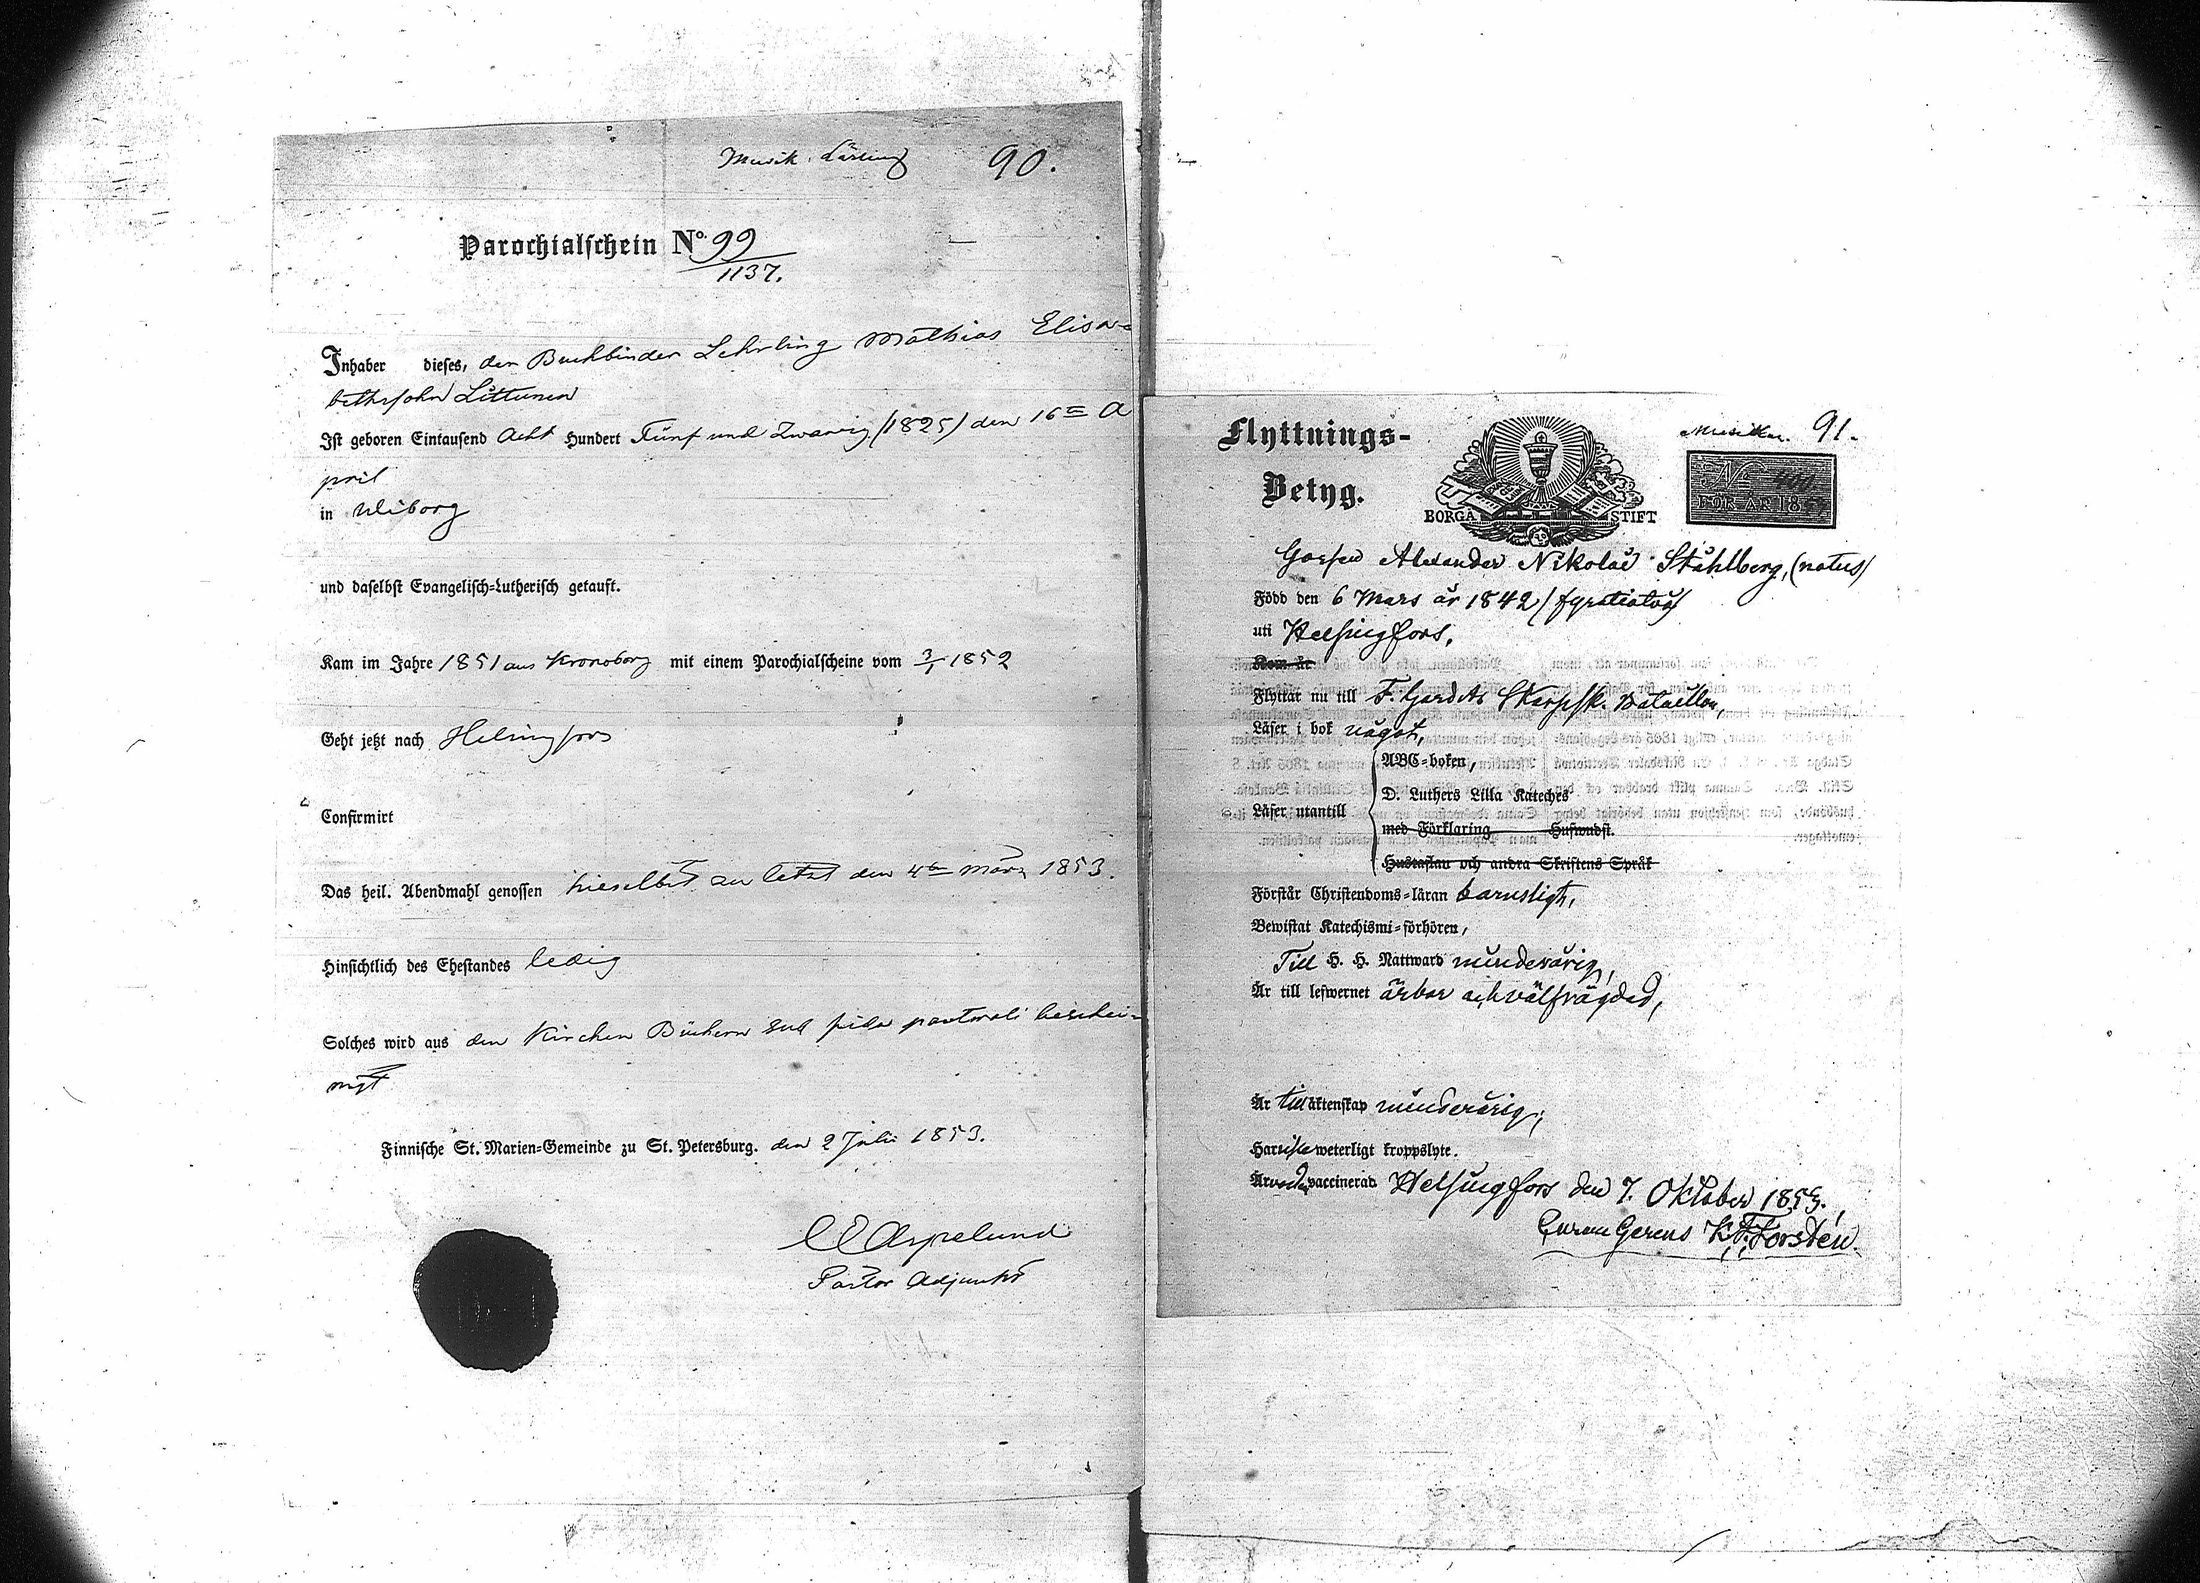 Musik Lärling 90.
Parochialschein No. 99
1137.
Inhaber dieses, der Buchbinder Lehrling Mathias Elisa-
bethsohn Littunen
Ist geboren Eintausend Acht Hundert Fünf und Zwanzig (1825) den 16ten A
pril
in Wiborg
und daselbst Evangelisch-Lutherisch getauft.
Kam im Jahre 1851 aus Kronoborg mit einem Parochialscheine vom 3/1 1852
Geht jetzt nach Helsingfors
Confirmirt
Das heil. Abendmahl genossen hieselbst zu letzt den 4ten März 1853.
Hinsichtlich des Ehestandes ledig
Solches wird aus den Kirchen Büchern sub fide pastorali beschei-
nigt
Finnische St. Marien-Gemeinde zu St. Petersburg. den 2 Juli 1853.
Pastor Adjunkt
Flyttnings-
Betyg.
BORGÅ STIFT
91.
No
FÖR ÅR 185
Gossen Alexander Nikolai Ståhlberg, (notus)
Född den 6 Mars år 1842 / fyratiotvå/
uti Helsingfors,
Kom år
Flyttar nu till F. Gardets Skarpsk. Bataillon,
Läser i bok något,
ABC-boken,
D. Luthers Lilla Kateches
Läser utantill
med Förklaring Huswudst.
Hustaflan och andra Skriftens Språk
Förstår Christendoms-läran barnsligt,
Bewistat Katechismi-förhören,
Till H. H. Nattward minderårig,
Är till lefwernet ärbar och välfrägdad,
Är till äktenskap minderårig,
Har icke weterligt kroppslyte.
Är vaccinerad. Helsingfors den 7. Oktober 1853.,
Curam Gerens K. F. Forstén.